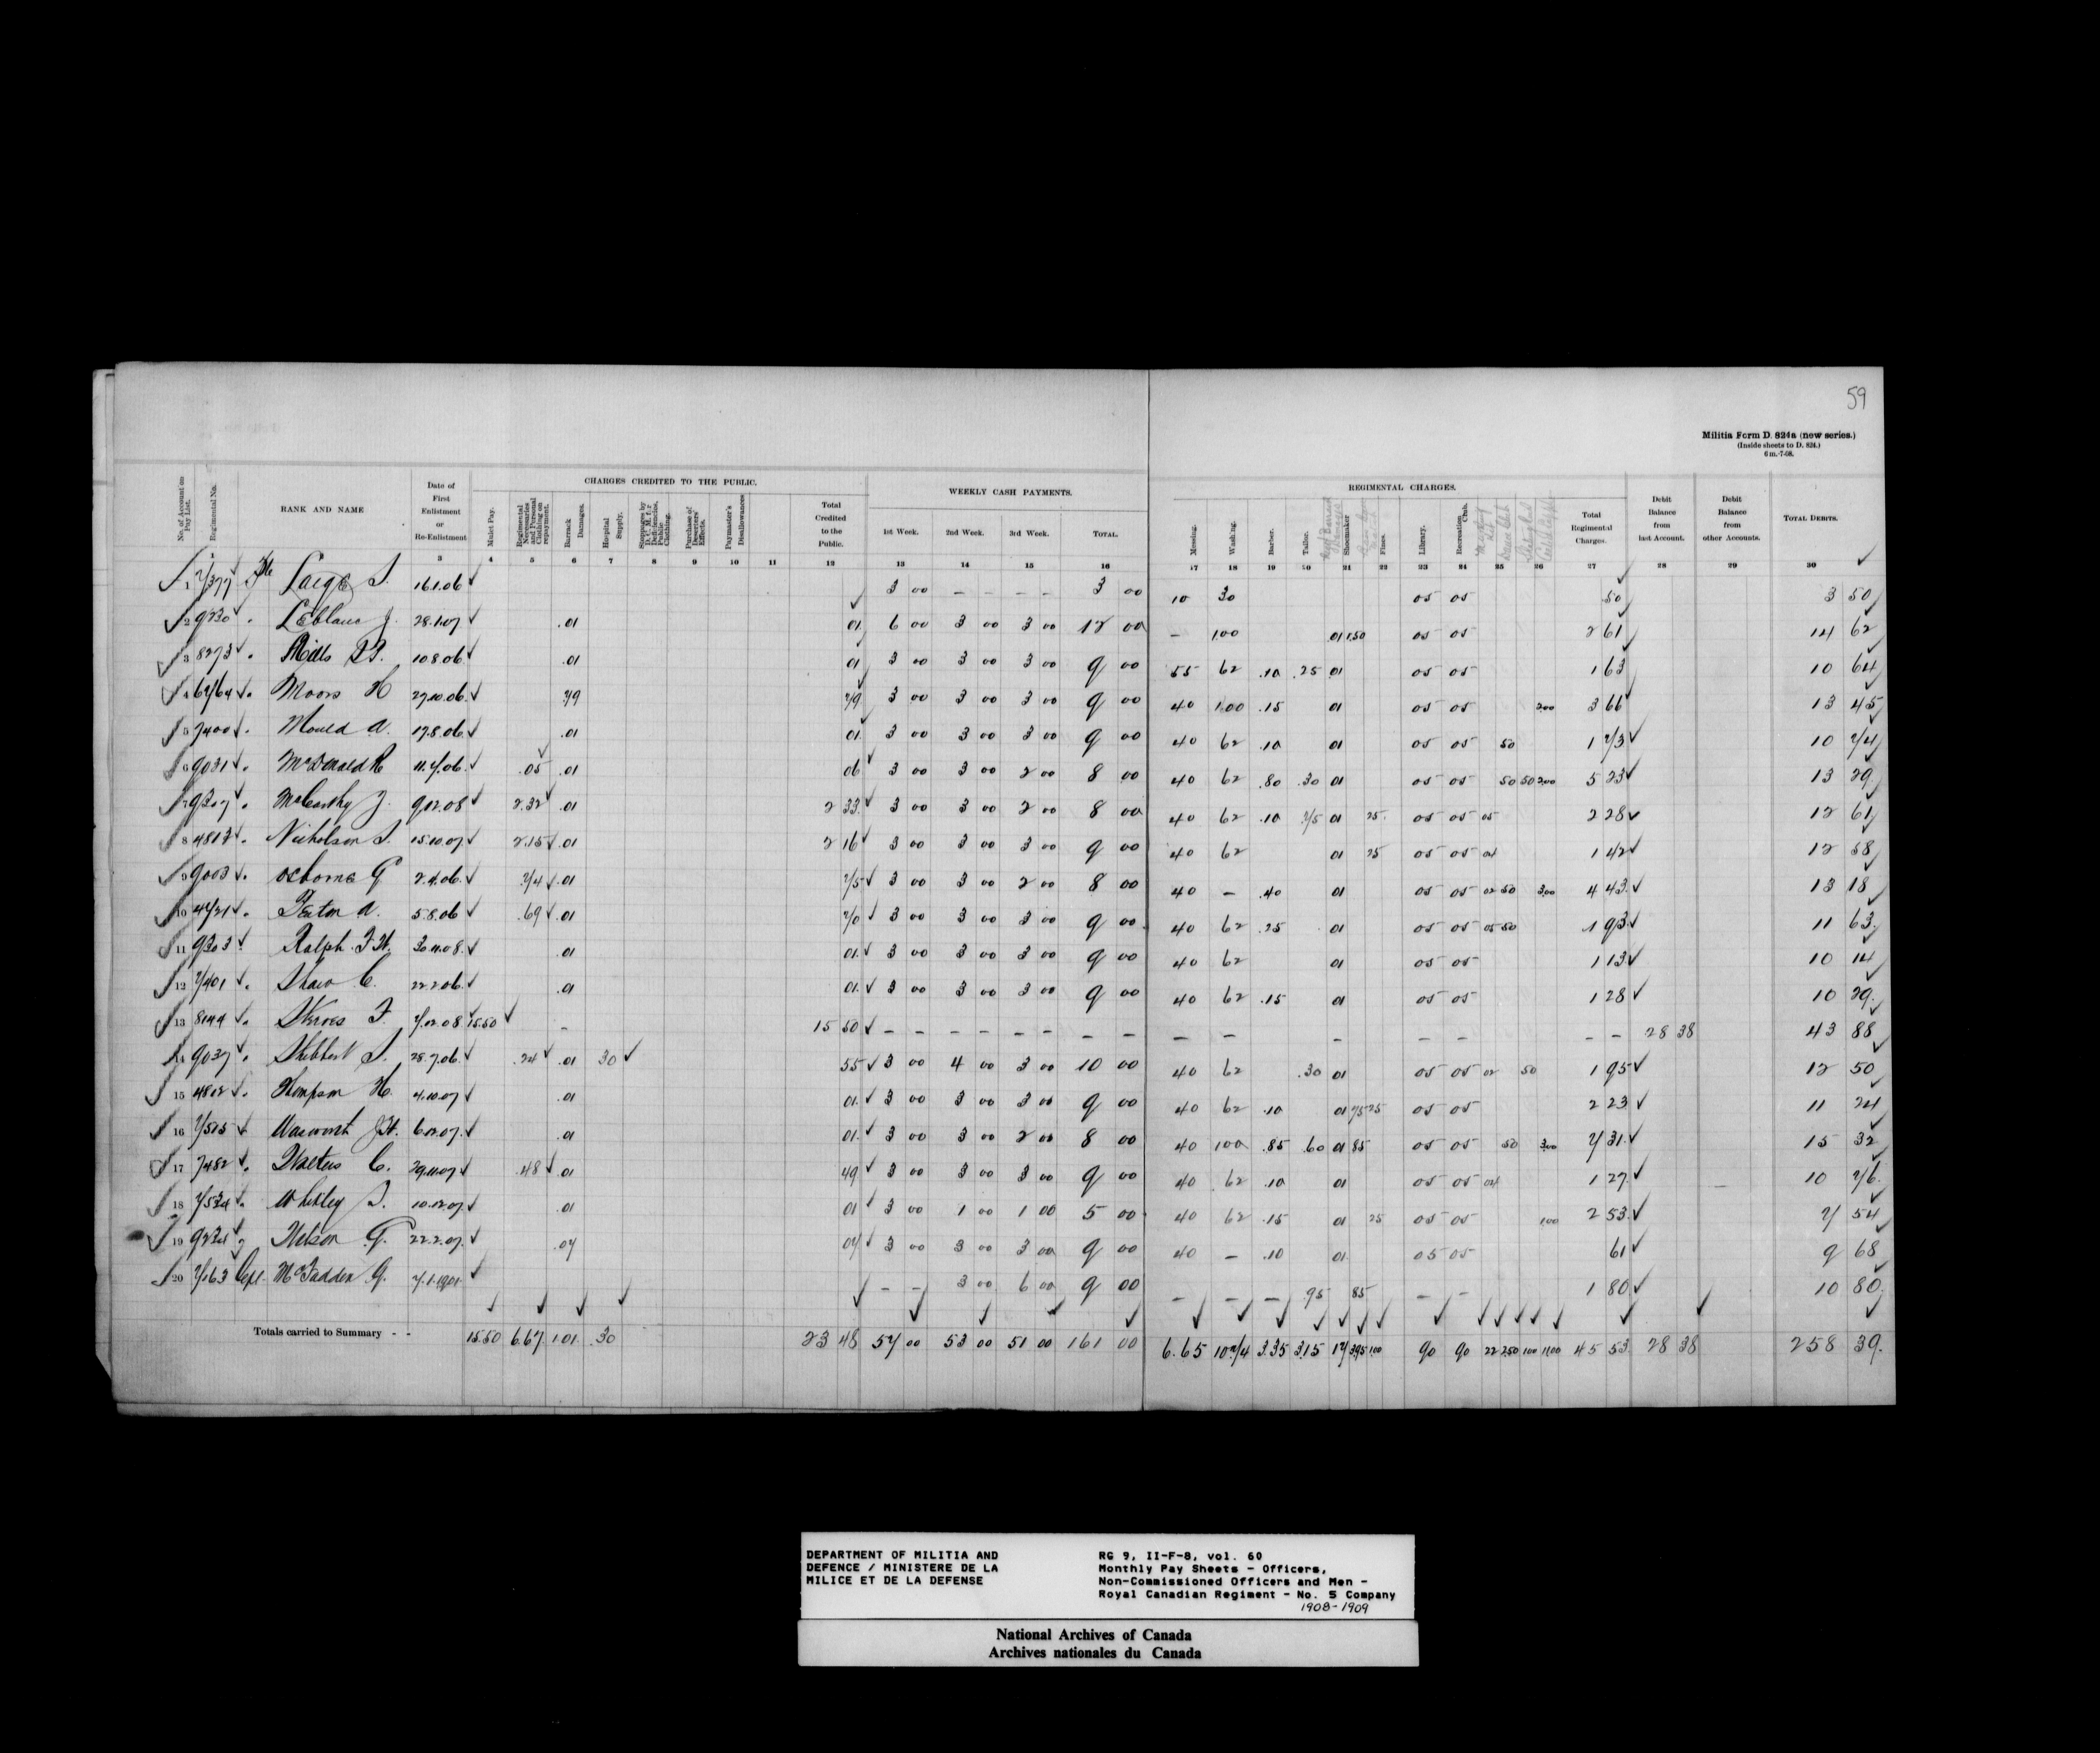 59
Militia Form D. 824a (new series.)
(Inside sheets to D. 824.)
6 m.-7-08.
CHARGES CREDITED TO THE PUBLIC. WEEKLY CASH PAYMENTS. REGIMENTAL CHARGES.
No. of Account on Pay List. Regimental No. RANK AND NAME Date of First Enlistment or Re-Enlistment Mulct Pay. Regimental Necessaries and Personal Clothing on repayment. Barrack Damages. Hospital Supply. Stoppages by D.C.M. f.r Deficiencies, Public Clothing. Purchase of Deserters' Effects. Paymaster's Disallowances Total Credited to the Public. 1st Week. 2nd Week. 3rd Week. TOTAL. Messing. Washing. Barber. Tailor. Shoemaker Fines. Library. Recreation Club. Total Regimental Charges. Debit Balance from last Account. Debit Balance from other Accounts. TOTAL DEBITS.
3 4 5 6 7 8 9 10 11 12 13 14 15 16 17 18 19 20 21 22 23 24 25 26 27 28 29 30
1 7377 Pte S. 16.1.06 3 00 - - - - 3 00 10 30 05 05 50 3 50
2 9230 " LeBlanc J. 28.1.07 .01 01 6 00 3 00 3 00 12 00 - 1.00 01 1.50 05 05 2 61 14 62
3 8273 " Mills 10.8.06 .01 01 3 00 3 00 3 00 9 00 55 62 .10 .25 01 05 05 1 63 10 64
4 6764 " Moors H 27.10.06 .79 79 3 00 3 00 3 00 9 00 40 1.00 .15 01 05 05 2.00 3 66 13 45
5 7400 " Mould A. 17.8.06 .01 01 3 00 3 00 3 00 9 00 40 62 .10 01 05 05 50 1 73 10 74
6 9031 " McDonald R 11.7.06 .05 .01 06 3 00 3 00 2 00 8 00 40 62 .80 .30 01 05 05 50 50 2.00 5 23 13 29
7 9307 " McCarthy J. 9.12.08 2.32 .01 2 33 3 00 3 00 2 00 8 00 40 62 .10 .75 01 25 05 05 05 2 28 12 61
8 4813 " Nicholson S. 15.10.07 2.15 .01 2 16 3 00 3 00 3 00 9 00 40 62 01 25 05 05 04 1 42 12 58
9 9003 " Osborne G 2.4.06 .74 .01 75 3 00 3 00 2 00 8 00 40 - .40 01 05 05 02 50 3.00 4 43 13 18
10 4721 " A. 5.8.06 .69 .01 70 3 00 3 00 3 00 9 00 40 62 .25 01 05 05 05 50 1 93 11 63
11 9303 " Ralph F.H. 30.11.08 .01 01 3 00 3 00 3 00 9 00 40 62 01 05 05 1 13 10 14
12 7401 " Shaw C. 22.2.06 .01 01 3 00 3 00 3 00 9 00 40 62 .15 01 05 05 1 28 10 29
13 8144 " F. 7.12.08 15.50 - 15 50 - - - - - - - - - - - - - - 28 38 43 88
14 9037 " S. 28.7.06 .24 .01 30 55 3 00 4 00 3 00 10 00 40 62 .30 01 05 05 02 50 1 95 12 50
15 4812 " Thompson H. 4.10.07 .01 01 3 00 3 00 3 00 9 00 40 62 .10 01 75 25 05 05 2 23 11 24
16 7515 " J.H. 6.12.07 .01 01 3 00 3 00 2 00 8 00 40 1.00 .85 .60 01 85 05 05 50 3.00 7 31 15 32
17 7482 " Walters C. 29.11.07 .48 .01 49 3 00 3 00 3 00 9 00 40 .62 .10 01 05 05 04 1 27 10 76
18 7524 " Whitley S. 10.12.07 .01 01 3 00 1 00 1 00 5 00 40 62 .15 01 25 05 05 1.00 2 53 7 54
19 9234 " Wilson G. 22.2.07 .07 07 3 00 3 00 3 00 9 00 40 - .10 01 05 05 61 9 68
20 7163 Cpl. McFadden G. 7.1.1901 - - 3 00 6 00 9 00 - - - .95 85 - - 1 80 10 80
Totals carried to Summary - - 15.50 6.67 1.01 .30 23 48 57 00 53 00 51 00 161 00 6.65 10.74 3.35 3.15 17 3.95 1.00 90 90 22 2.50 1.00 11.00 45 53 28 38 258 39.
DEPARTMENT OF MILITIA AND
DEFENCE / MINISTERE DE LA
MILICE ET DE LA DEFENSE
RG 9, II-F-8, vol. 60
Monthly Pay Sheets - Officers,
Non-Commissioned Officers and Men -
Royal Canadian Regiment - No. 5 Company
1908-1909
National Archives of Canada
Archives nationales du Canada